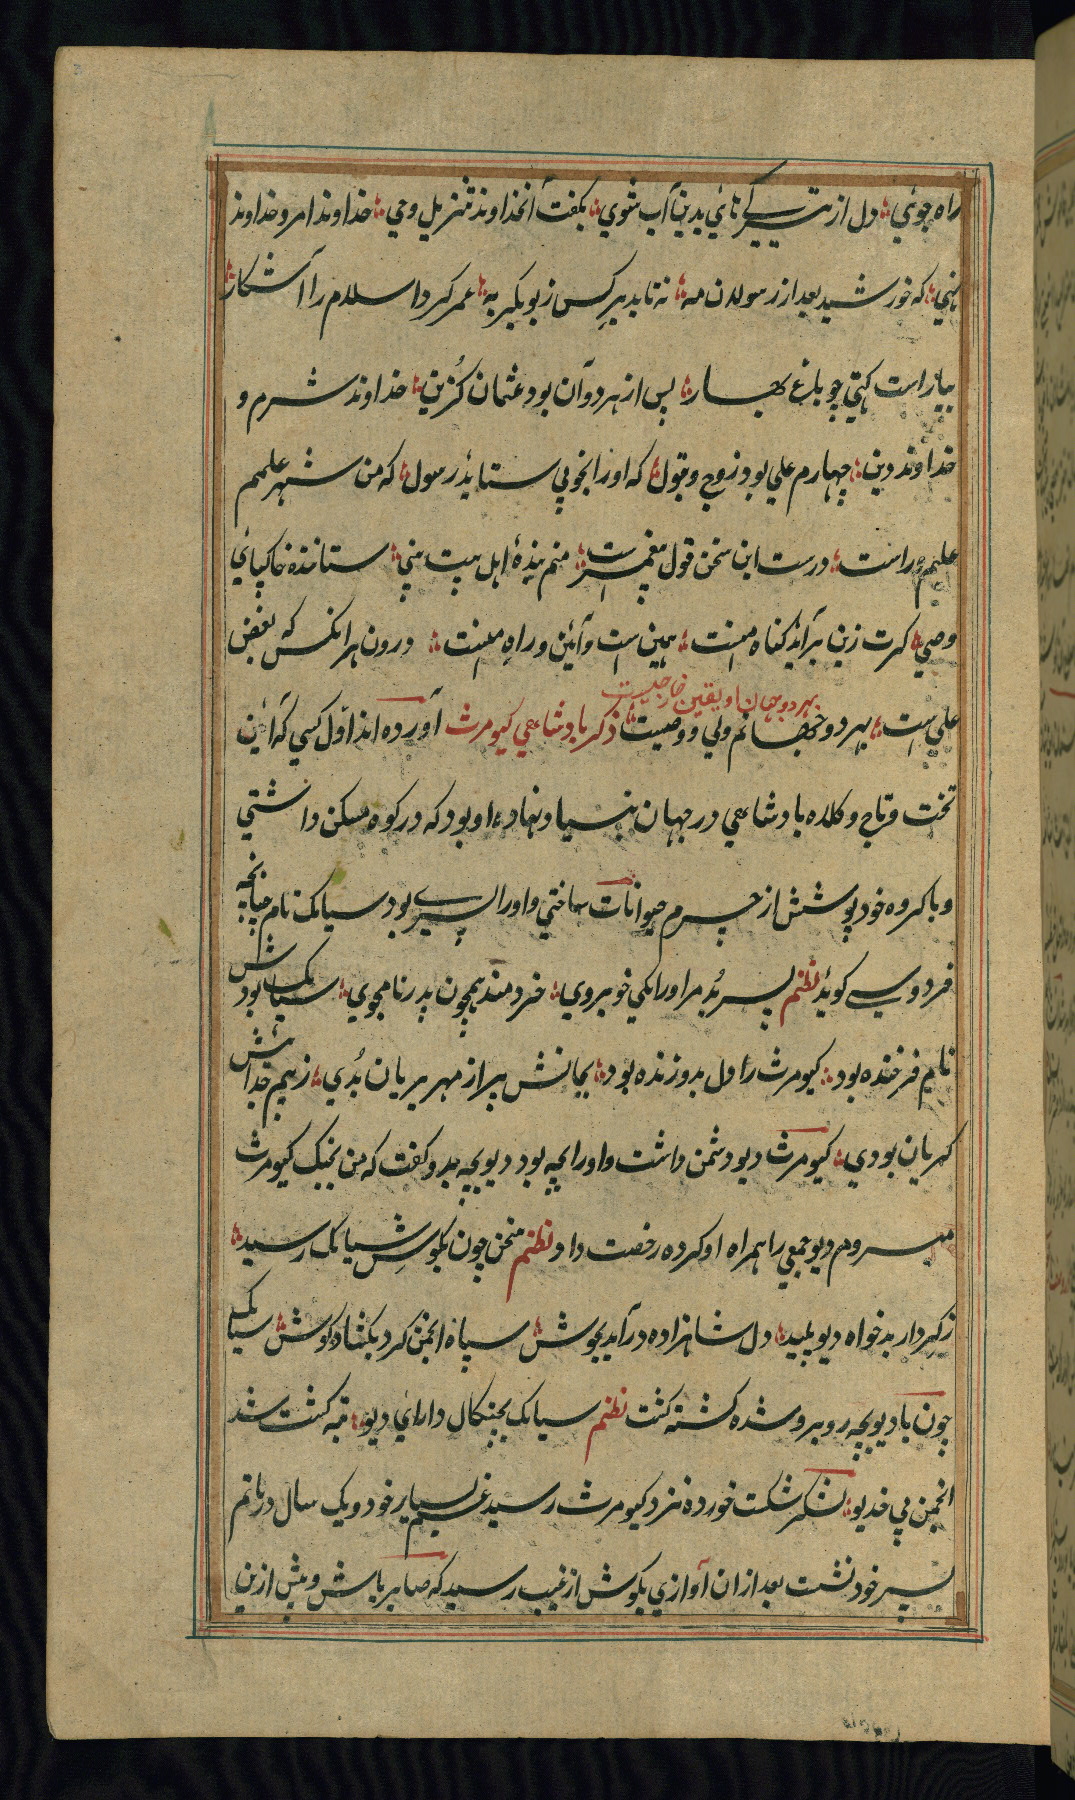 راه جوئي دل از تیرگي هائي بدین آب شوي بگفت آنخداوند تنزیل وحي خداوند امر و خداوند
نهي که خورشید بعد از رسولان مه نه تابد بر کس ز بوبکر به عمر کرد اسلام را آشکار
بیاراست گیتي چو باغ بهار پس از هر دو آن بود عثمان گزین خداوند شرم و
خداوند دین چهارم علي بود زوج بتول که او را بخوبي ستاید رسول که من شهر علمم
علیم در است درست این سخن قول پیغمبر است منم بندهٔ اهل بیت نبي ستاننده خاکپائي
وصي گرت زین بر آید گناه منست همین است و آئین و راه منست درون هر انکس که بغض
بهر دو جهان او یقین خارجیست
علي است بهر دو جهانم ولي و وصیت ذکر بادشاهي کیومرث آورده اند اول کسي که آئین
تخت و تاج و کلاه بادشاهي در جهان بنیاد نهاده او بود که در کوه مسکن داشتي
و با گروه خود پوشش از چرم حیوانات ساختي و او را پسرے بود سیامک نام چنانچه
فردوسي گوید نظم پسر بد مر او را یکي خوبروي خردمند همچون پدر نامجوي سیامک بودش
نام فرخنده بود کیومرث را دل بدو زنده بود بجانش بر از مهر بریان بدي ز بیم جدائیش
گریان بودي کیومرث دیو دشمن داشت و او را بچه بود دیو بچه بدو گفت که من بجنگ کیومرث
میروم دیو جمعي را همراه او کرده رخصت داد نظم سخن چون بگوش سیامک رسید
ز کردار بدخواه دیو پلید دل شاهزاده درآمد بجوش سپاه انجمن کرد بگشاد گوش سیامک
چون با دیو بچه روبرو شده کشته گشت نظم سیامک بچنگال داراي دیو تبه گشت شد
انجمن بي خدیو لشکر شکست خورده نزد کیومرث رسید غم بسیار خورد و یک سال در ماتم
پسر خود نشست بعد ازان آوازي بگوش از غیب رسید که صابر باش و بیش ازین